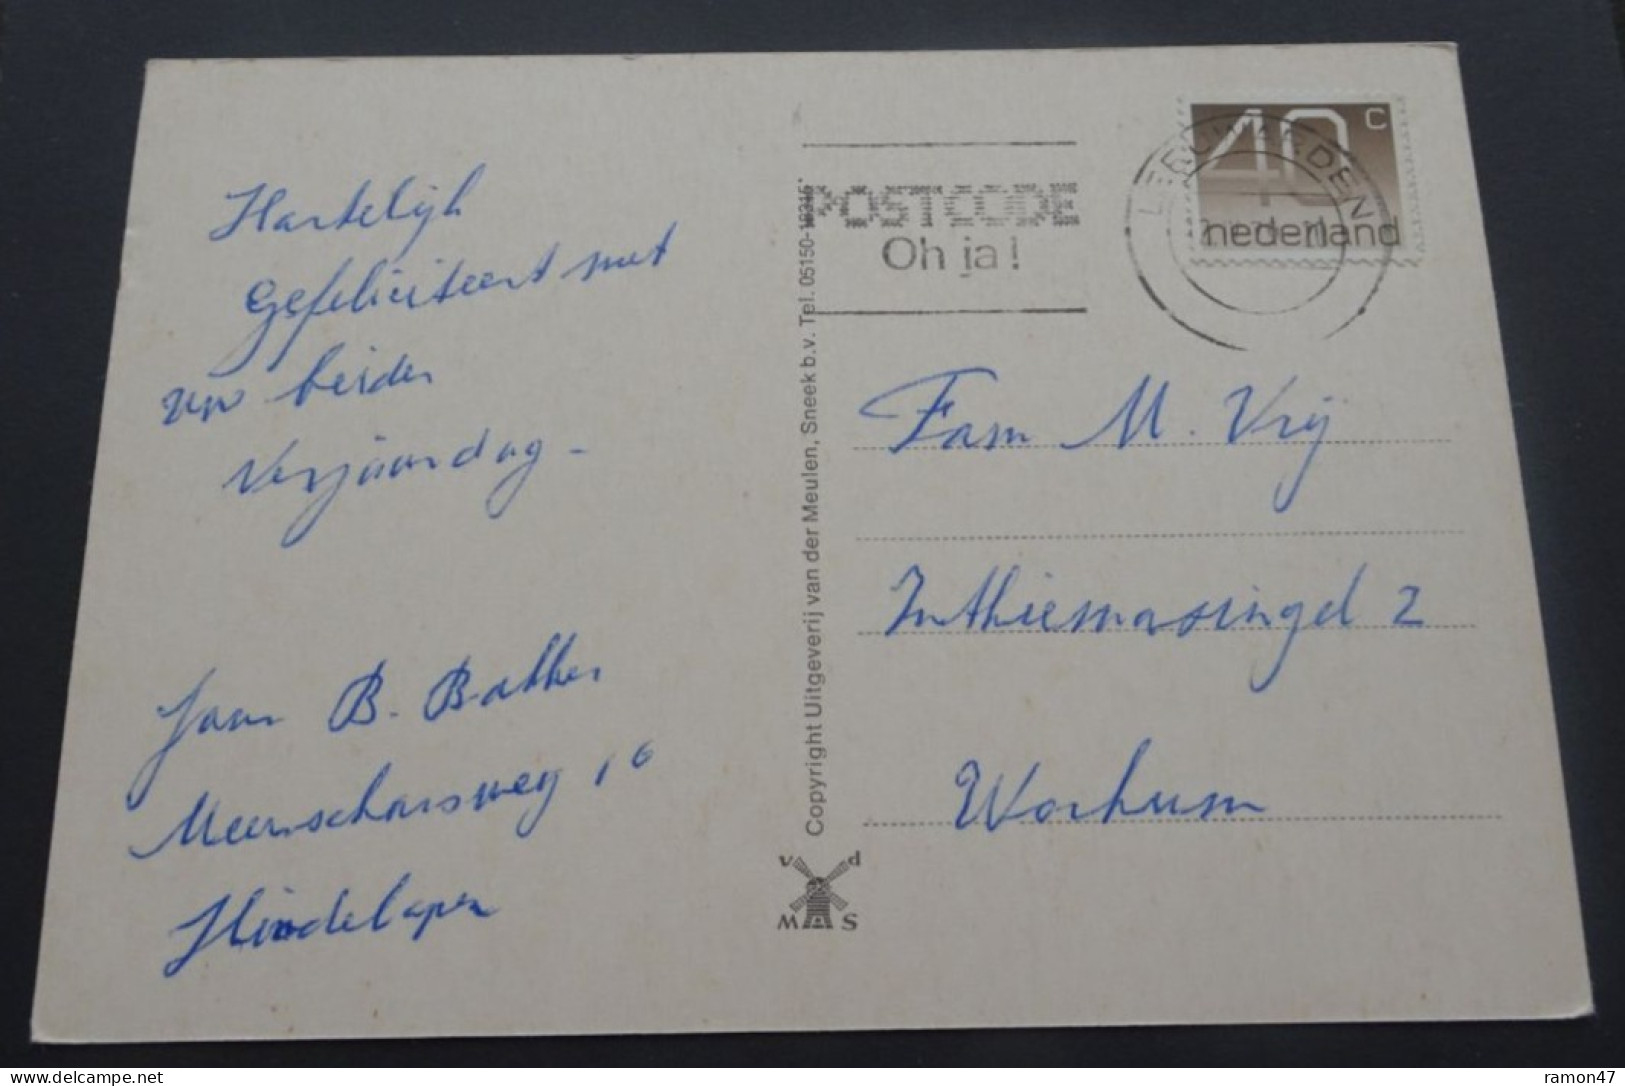 Hartelijk
Gefeliciteert met
uw beider
Verjaardag -
Fam B. Bakker
Meenscharsweg 16
Hindelopen
Copyright Uitgeverij van der Meulen, Sneek b.v. Tel. 05150-16315*
v d
M S
POSTCODE
Oh ja!
LEEUWARDEN
40 c
nederland
Fam M. Vrij
Inthiemasingel 2
Workum
delcampe.net
ramon47